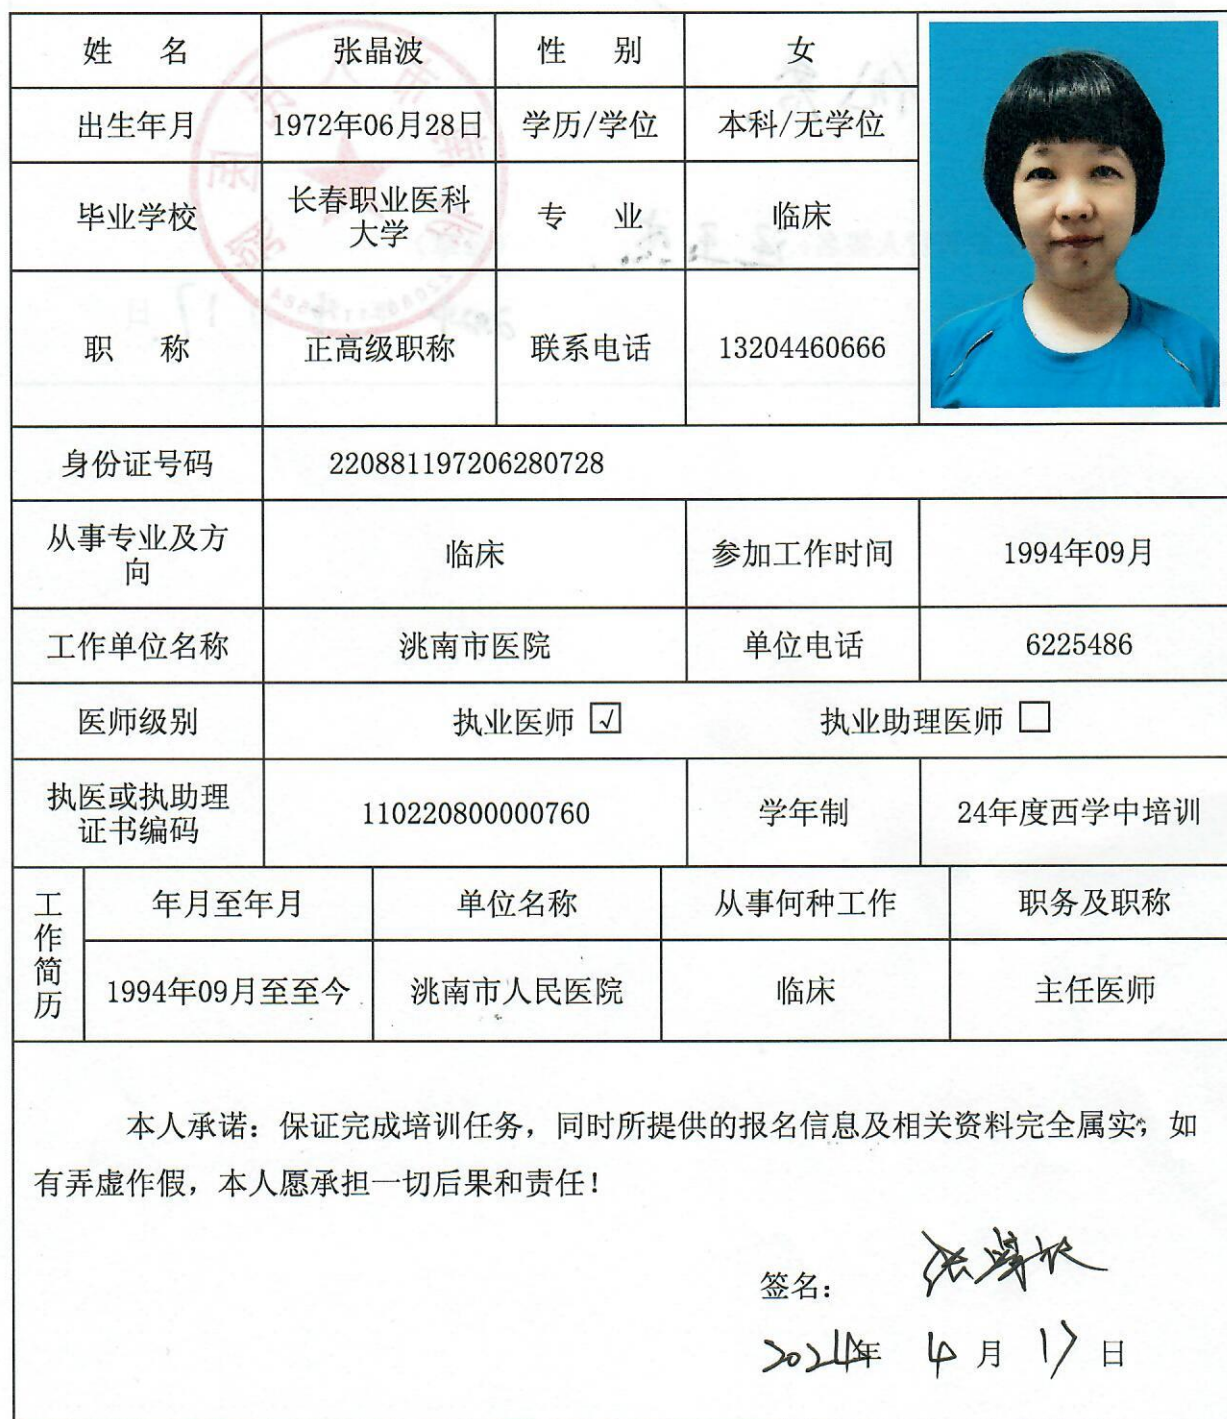 姓 名 张晶波 性 别 女
出生年月 1972年06月28日 学历/学位 本科/无学位
毕业学校 长春职业医科大学 专 业 临床
职 称 正高级职称 联系电话 13204460666
身份证号码 220881197206280728
从事专业及方向 临床 参加工作时间 1994年09月
工作单位名称 洮南市医院 单位电话 6225486
医师级别 执业医师 ☑ 执业助理医师 □
执医或执助理证书编码 110220800000760 学年制 24年度西学中培训
工作简历 年月至年月 单位名称 从事何种工作 职务及职称
1994年09月至至今 洮南市人民医院 临床 主任医师
本人承诺：保证完成培训任务，同时所提供的报名信息及相关资料完全属实，如
有弄虚作假，本人愿承担一切后果和责任！
签名： 张晶波
2024年 4 月 17 日